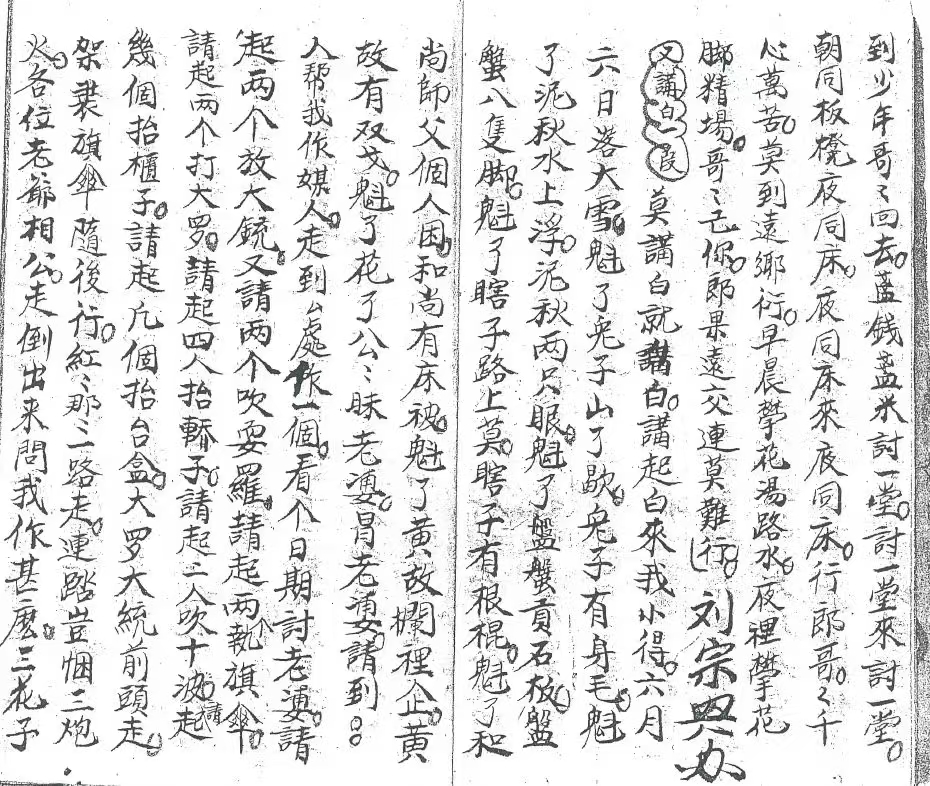 到少年哥〻回去。盖錢盖米討一堂。討一堂來討一堂。
朝同板櫈夜同床。夜同床來夜同床。行郎哥〻千
心萬苦。莫到遠鄉行。早晨攀花湯路水。夜裡攀花
脚精塲。哥〻已你。郎果遠交連莫難行。
刘宗興办
又講白一段 莫講白就講白。講起白來我小得。六月
六日落大雪。魁了兔子山了歇。兔子有身毛。魁
了泥秋水上浮。泥秋两只眼。魁了盤蟹貢石板。盤
蟹八隻脚。魁了瞎子路上莫。瞎子有根棍。魁了和
尚師父個人困。和尚有床被。魁了黄故欄裡企。黄
故有双戈。魁了花了公〻昧老婆。冒老婆。請到
人帮我作媒人。走到厶處作一個。看个日期討老婆。請
起两个放大銃。又請两个吹耍羅。請起两執旗傘。
請起两个打大罗。請起四人抬轎子。請起二人吹十波。請起
幾個抬櫃子。請起几個抬台盒。大罗大統前頭走。
架裴旗傘隨後行。紅〻那〻一路走。連踏豈悃三炮
火。各位老爺相公。走倒出来問我作甚麽。三花子